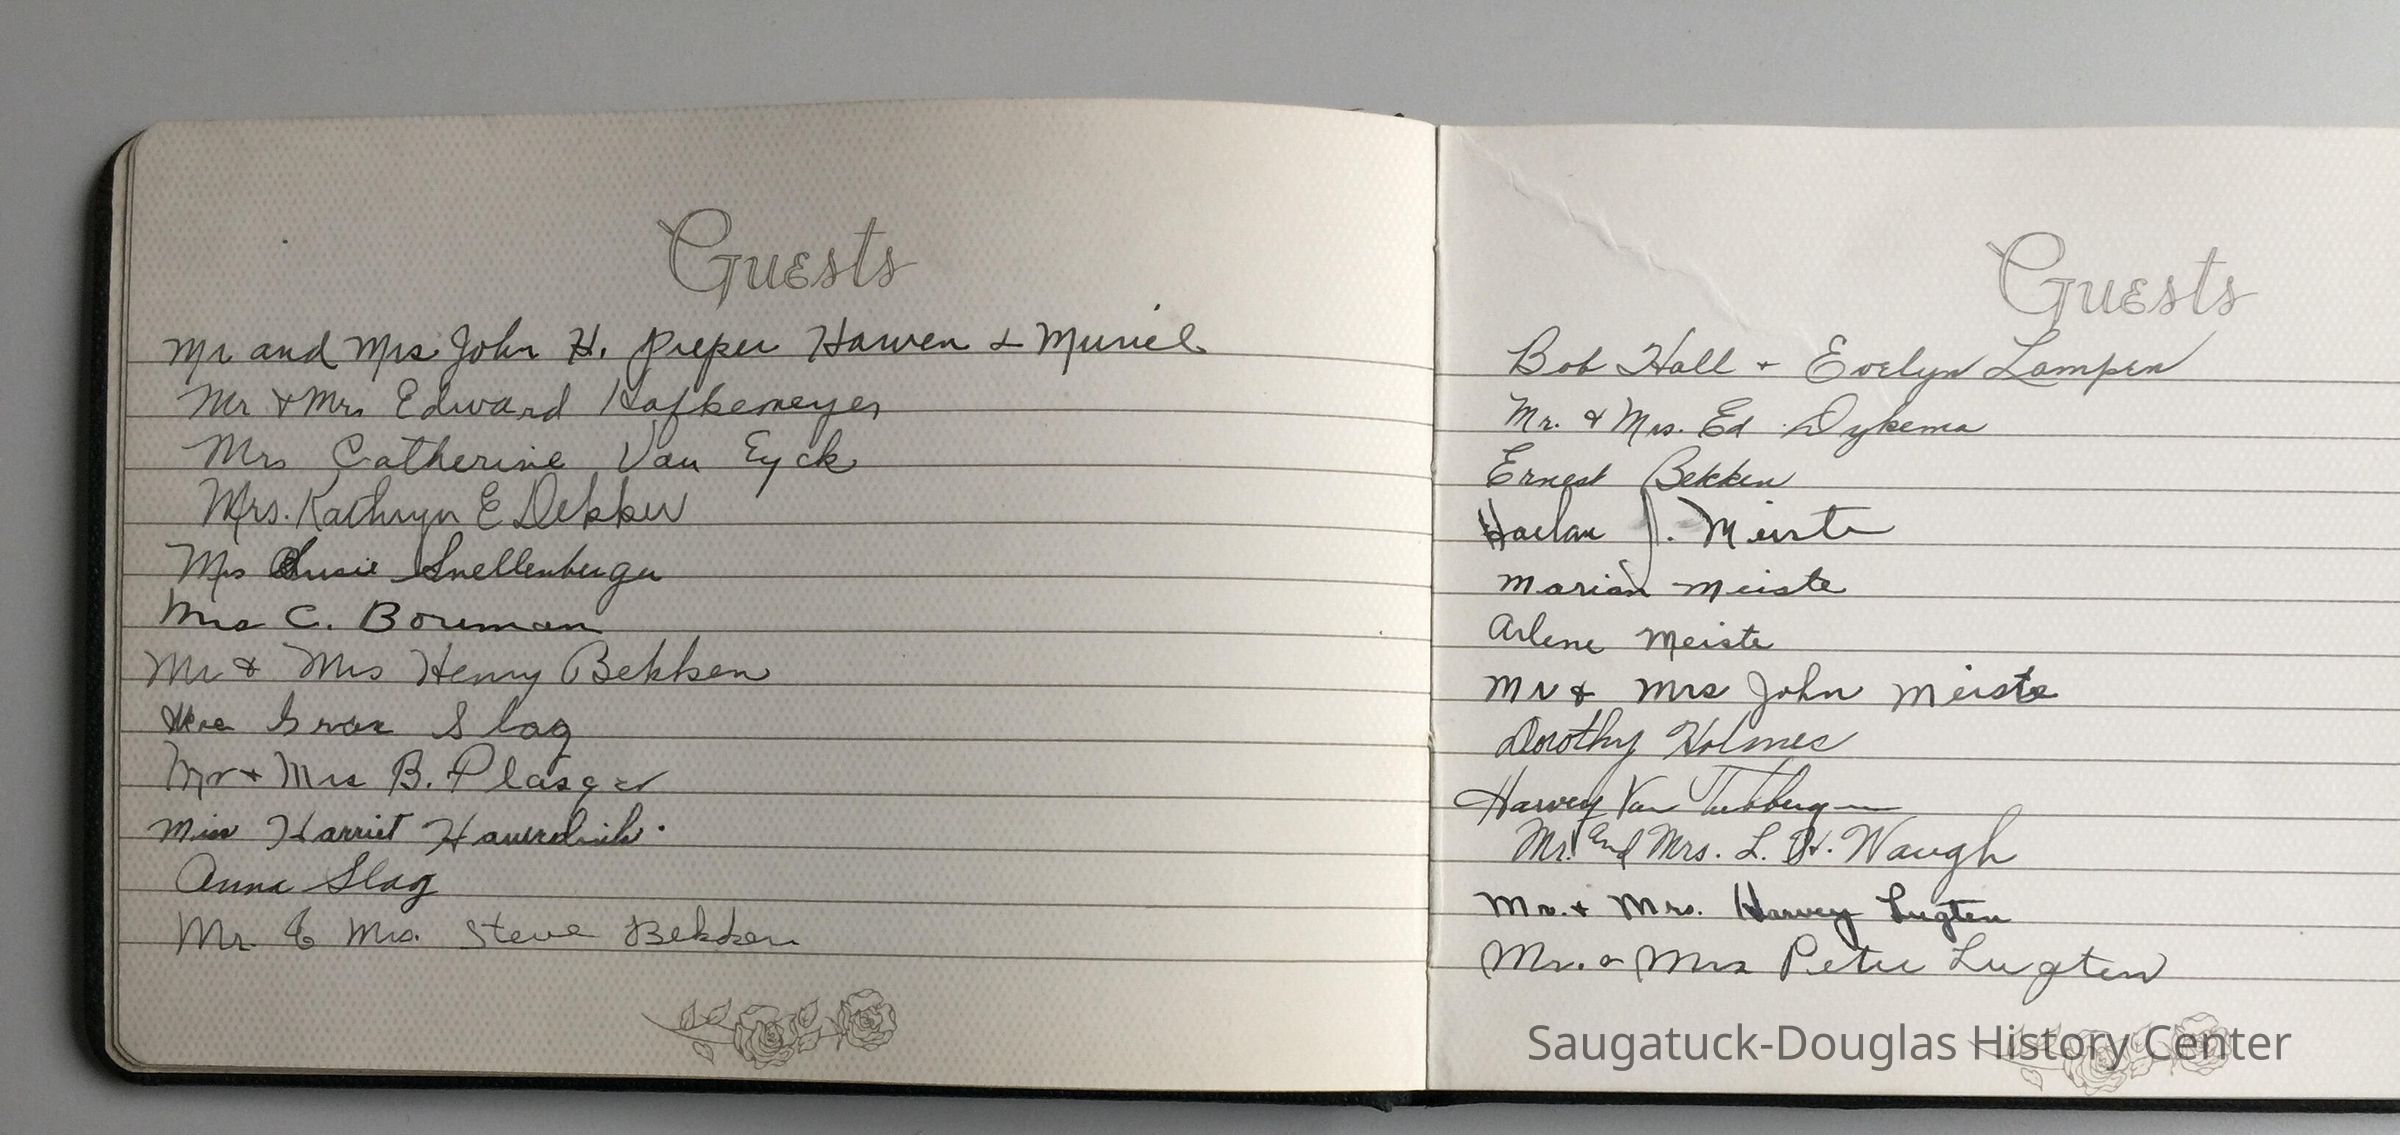 Guests
Mr and Mrs John H. Pieper Harven & Muriel
Mr & Mrs Edward Hafkemeyer
Mrs Catherine Van Eyck
Mrs. Kathryn E Dekker
Mrs Susie Snellenberger
Mrs C. Bowman
Mr & Mrs Henry Bekken
Mrs Slag
Mr + Mrs B. Plasger
Miss Harriet Haverdink.
Anna Slag
Mr. & Mrs. Steve Bekken
Guests
Bob Hall + Evelyn Lampen
Mr. & Mrs. Ed Dykema
Ernest Bekken
Harlan J. Meiste
Marian Meiste
Arlene Meiste
Mr & Mrs John Meiste
Dorothy Holmes
Harvey Van
Mr. and Mrs. L. H. Waugh
Mr. + Mrs. Harvey Lugten
Mr. & Mrs Peter Lugten
Saugatuck-Douglas History Center